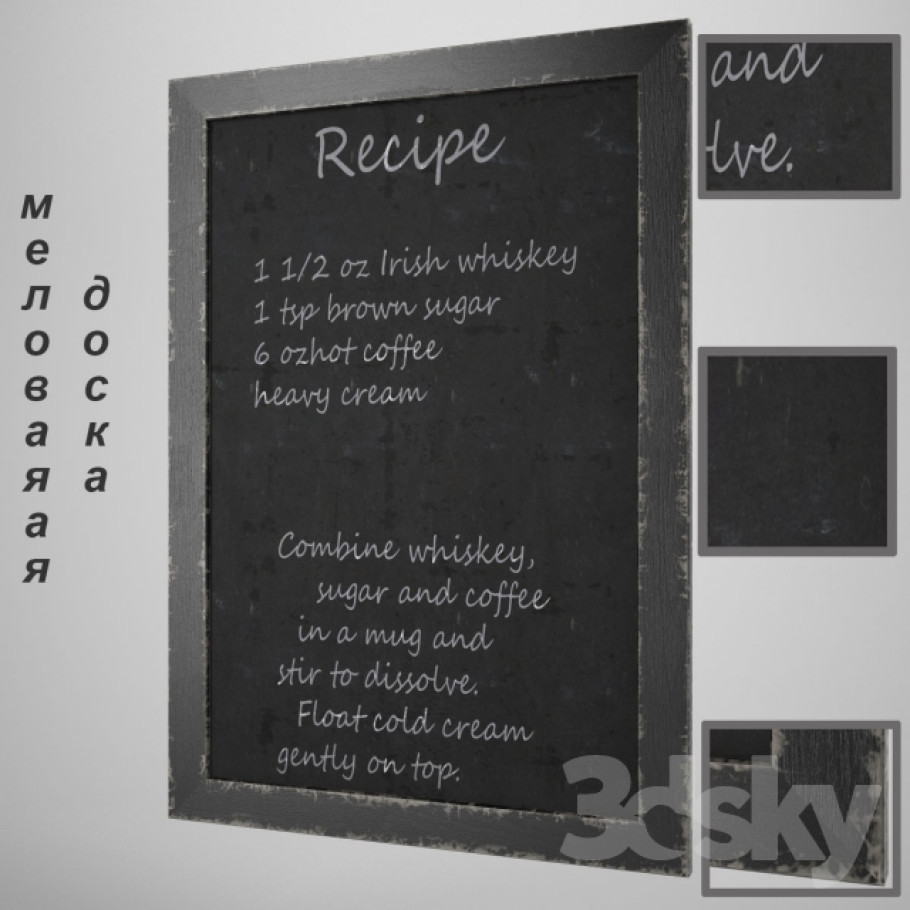 меловаяая
доска
Recipe
1 1/2 oz Irish whiskey
1 tsp brown sugar
6 ozhot coffee
heavy cream
Combine whiskey,
sugar and coffee
in a mug and
stir to dissolve.
Float cold cream
gently on top.
and
lve.
3dsky